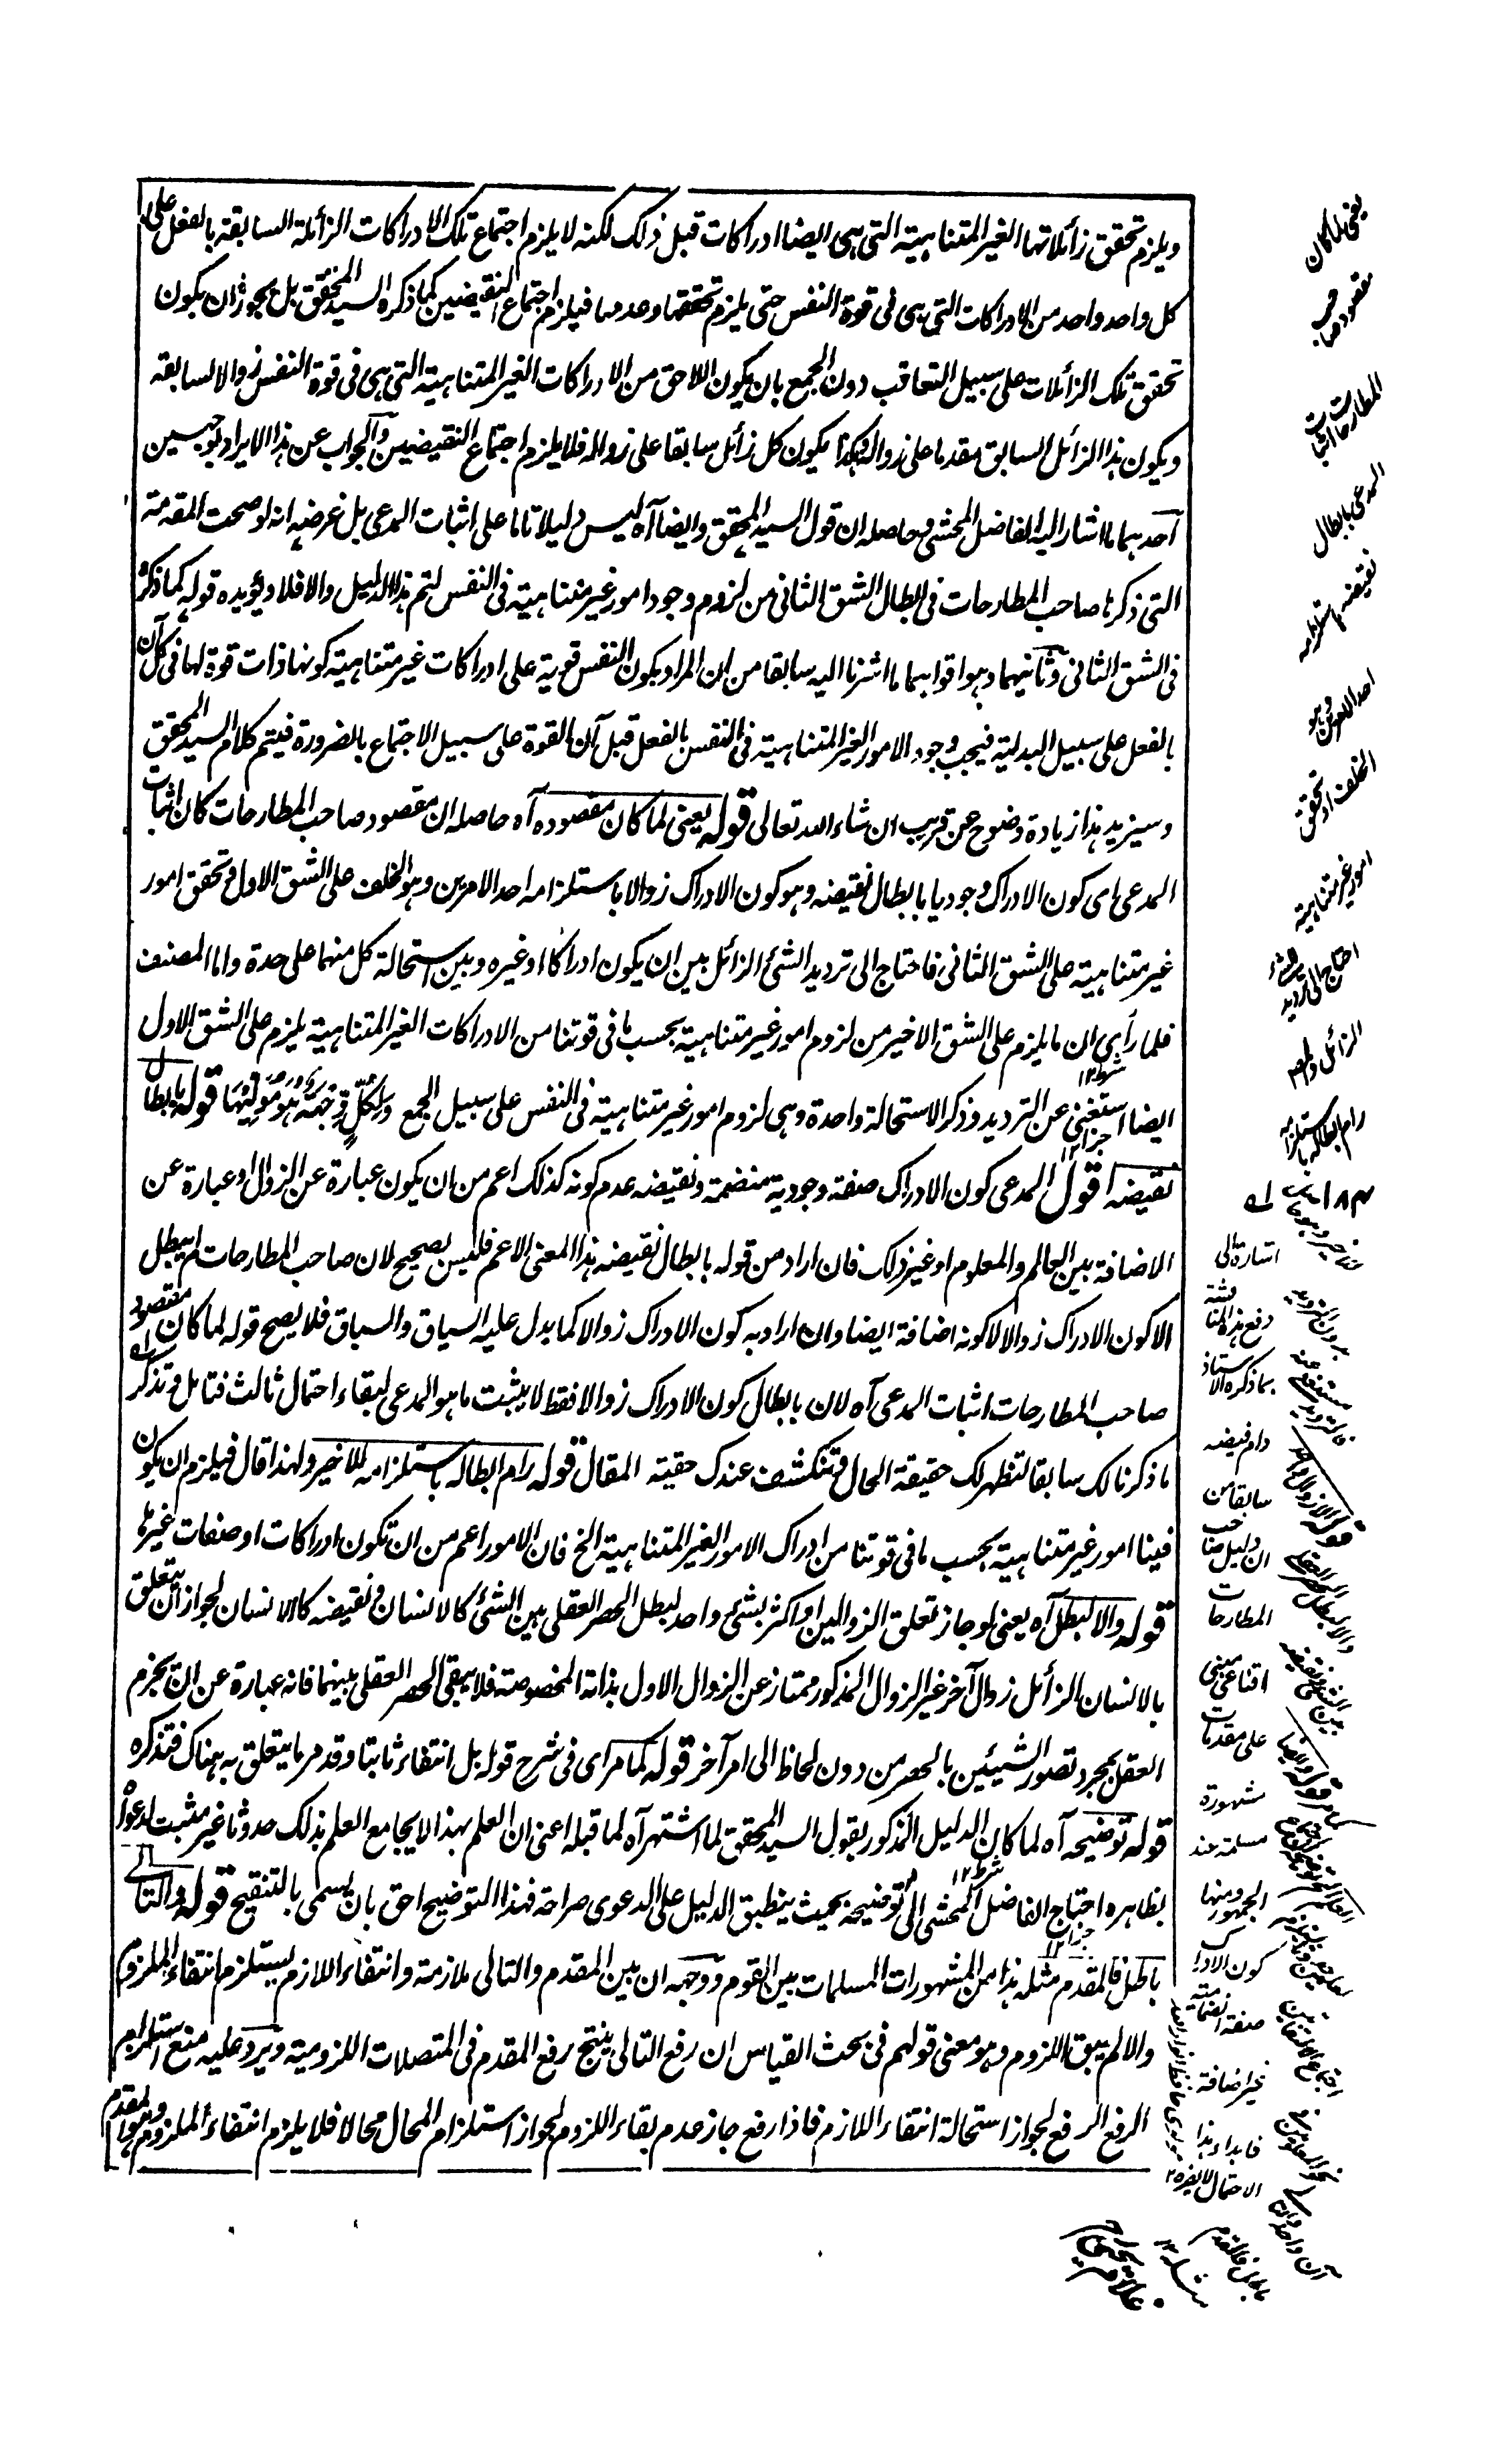 ويلزم تحقق زائلاتها الغير المتناهية التى هى ايضا ادراكات قبل ذلك لكنه لا يلزم اجتماع تلك الادراكات الزائلة السابقة بالفعل على
كل واحد واحد من الادراكات التى هى فى قوة النفس حتى يلزم تحققها وعدمها فيلزم اجتماع النقيضين كما ذكره السيد المحقق بل يجوز ان يكون
تحقق تلك الزائلات على سبيل التعاقب دون الجمع بان يكون اللاحق من الادراكات الغير المتناهية التى هى فى قوة النفس زوالا لسابقه
ويكون هذا الزائل السابق مقدما على زواله وهكذا يكون كل زائل سابقا على زواله فلا يلزم اجتماع النقيضين والجواب عن هذا الايراد بوجهين
احدهما ما اشار اليه الفاضل المحشى وحاصله ان قول السيد المحقق وايضا آه ليس دليلا تاما على اثبات المدعى بل غرضه انه لو صحت المقدمة
التى ذكرها صاحب المطارحات فى ابطال الشق الثانى من لزوم وجود امور غير متناهية فى النفس لتم هذا الدليل والا فلا ويؤيده قوله كما ذكره
فى الشق الثانى وثانيهما وهو اقواهما ما اشرنا اليه سابقا من ان المراد بكون النفس قوية على ادراكات غير متناهية كونها ذات قوة لها فى كل آن
بالفعل على سبيل البدلية فيجب وجود الامور الغير المتناهية فى النفس بالفعل قبل آن القوة على سبيل الاجتماع بالضرورة فيتم كلام السيد المحقق
وسيزيد هذا زيادة وضوح عن قريب ان شاء الله تعالى قوله يعنى لما كان مقصوده آه حاصله ان مقصود صاحب المطارحات كان اثبات
المدعى اى كون الادراك وجوديا بابطال نقيضه وهو كون الادراك زوالا باستلزامه احد الامرين وهو الخلف على الشق الاول وتحقق امور
غير متناهية على الشق الثانى فاحتاج الى ترديد الشئ الزائل بين ان يكون ادراكا او غيره وبين استحالة كل منهما على حدة واما المصنف
فلما رأى ان ما يلزم على الشق الاخير من لزوم امور غير متناهية بحسب ما فى قوتنا من الادراكات الغير المتناهية يلزم على الشق الاول
ايضا استغنى عن الترديد وذكر الاستحالة واحدة وهى لزوم امور غير متناهية فى النفس على سبيل الجمع ولكل وجهة هو موليها قوله بابطال
نقيضه اقول المدعى كون الادراك صفة وجودية منضمة ونقيضه عدم كونه كذلك اعم من ان يكون عبارة عن الزوال او عبارة عن
الاضافة بين العالم والمعلوم او غير ذلك فان اراد من قوله بابطال نقيضه هذا المعنى الاعم فليس بصحيح لان صاحب المطارحات لم يبطل
الا كون الادراك زوالا لا كونه اضافة ايضا وان اراد به كون الادراك زوالا كما يدل عليه السياق والسباق فلا يصح قوله لما كان مقصود
صاحب المطارحات اثبات المدعى آه لان بابطال كون الادراك زوالا فقط لا يثبت ما هو المدعى لبقاء احتمال ثالث فتامل وتذكر
ما ذكرنا لك سابقا لتظهر لك حقيقة الحال وتنكشف عندك حقية المقال قوله رام ابطاله باستلزامه للاخير ولهذا قال فيلزم ان يكون
فينا امور غير متناهية بحسب ما فى قوتنا من ادراك الامور الغير المتناهية الخ فان الامور اعم من ان تكون ادراكات او صفات غيرها
قوله والا لبطل آه يعنى لو جاز تعلق الزوالين او اكثر بشئ واحد لبطل الحصر العقلى بين الشئ كالانسان ونقيضه كاللا انسان لجواز ان يتعلق
بالانسان الزائل زوال آخر غير الزوال المذكور ممتاز عن الزوال الاول بذاته المخصوصة فلا يبقى الحصر العقلى بينهما فانه عبارة عن ان يجزم
العقل بمجرد تصور الشيئين بالحصر من دون لحاظ الى امر آخر قوله كما مر اى فى شرح قوله بل انتفاء ثابتا وقد مر ما يتعلق به هناك فتذكره
قوله توضيحه آه لما كان الدليل المذكور بقول السيد المحقق لما اشتهر آه لما قبله اعنى ان العلم بهذا لا يجامع العلم بذلك حدوثا غير مثبت لدعواه
بظاهره احتاج الفاضل المحشى الى توضيحه بحيث ينطبق الدليل على الدعوى صراحة فهذا التوضيح احق بان يسمى بالتنقيح قوله والتالى
باطل فالمقدم مثله هذا من المشهورات المسلمات بين القوم ووجهه ان بين المقدم والتالى ملازمة وانتفاء اللازم يستلزم انتفاء الملزوم
والا لم يبق اللزوم وهو معنى قولهم فى بحث القياس ان رفع التالى ينتج رفع المقدم فى المتصلات اللزومية ويرد عليه منع استلزام
الرفع الرفع لجواز استحالة انتفاء اللازم فاذا رفع جاز عدم بقاء اللزوم لجواز استلزام المحال محالا فلا يلزم انتفاء الملزوم وهو المقدم
يعنى لما كان
مقصود صاحب
المطارحات اثبات
المدعى بابطال
نقيضه
احد الامرين وهو
الخلف او تحقق
امور غير متناهية
احتاج الى ترديد
الزائل
رام ابطاله باستلزامه
اشارة الى
دفع هذه المناقشة
بما ذكره الاستاذ
دام فيضه
سابقا من
ان دليل صاحب
المطارحات
اقناعى مبنى
على مقدمات
مشهورة
مسلمة عند
الجمهور ومنها
كون الادراك
صفة انضمامية
غير اضافة
فابداء هذا
الاحتمال لا يضره ١٢